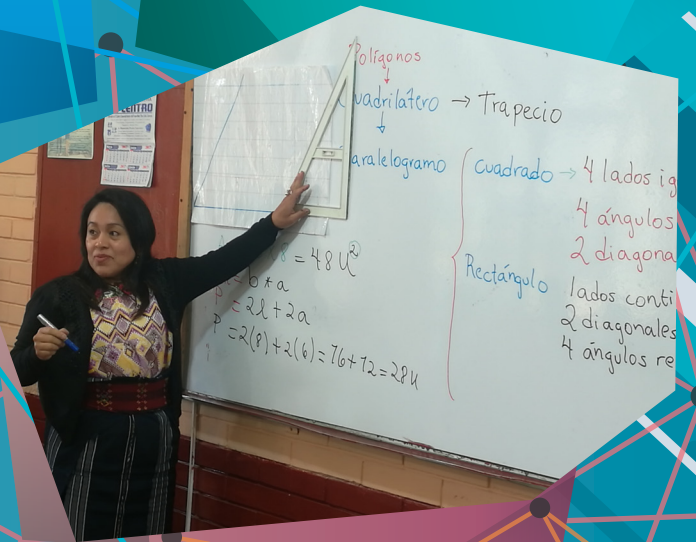 ENTRO
Polígonos
Cuadrilátero → Trapecio
aralelogramo
cuadrado → 4 lados ig
4 ángulos
2 diagona
Rectángulo
lados conti
2 diagonales
4 ángulos re
8 = 48 u²
= b * a
P = 2l + 2a
P = 2(8) + 2(6) = 16 + 12 = 28u